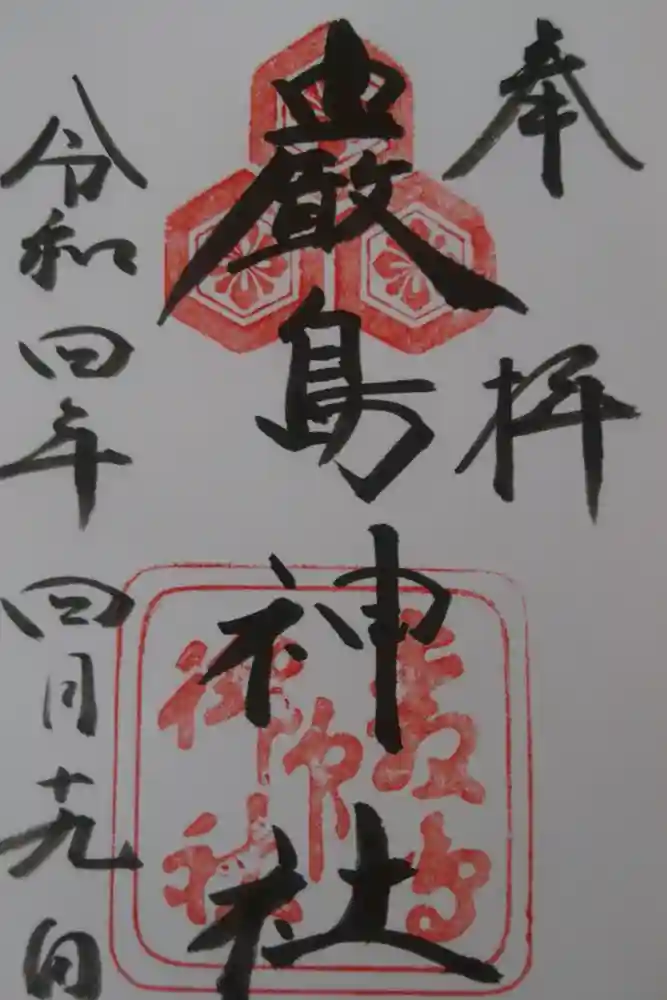 奉拝
嚴島神社
令和四年四月十九日